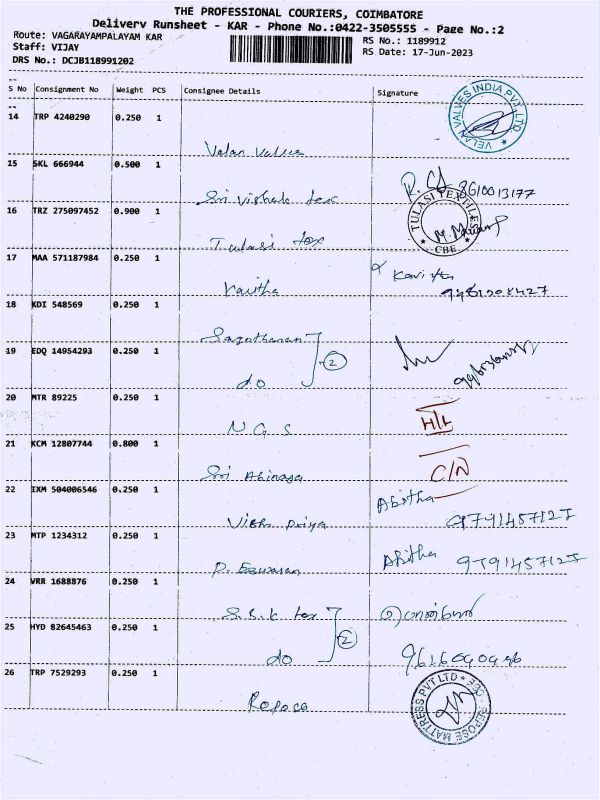 THE PROFESSIONAL COURIERS, COIMBATORE
Delivery Runsheet - KAR - Phone No.:0422-3505555 - Page No.:2
Route: VAGARAYAMPALAYAM KAR
RS No.: 1189912
Staff: VIJAY
RS Date: 17-Jun-2023
DRS No.: DCJB118991202
S No Consignment No Weight PCS Consignee Details Signature
14 TRP 4240290 0.250 1
VELAN VALVES INDIA PVT LTD
Velan Valves
15 SKL 666944 0.500 1
Sri Vishak tex
8610013177
16 TRZ 275097452 0.900 1
TULASI TEXTILES CBE
Tulasi tex
17 MAA 571187984 0.250 1
Kavitha
Kavitha
18 KDI 548569 0.250 1
19 EDQ 14954293 0.250 1
2
do
20 MTR 89225 0.250 1
NGS
H/L
21 KCM 12807744 0.800 1
Sri Abinaya
C/N
22 IXM 504006546 0.250 1
Abitha
Vishnu Priya
9791457127
23 MTP 1234312 0.250 1
Abitha
9791457127
P. Eswaran
24 VRR 1688876 0.250 1
S.S.K tex
25 HYD 82645463 0.250 1
2
do
26 TRP 7529293 0.250 1
REPOSE MATTRESS PVT LTD
Repose